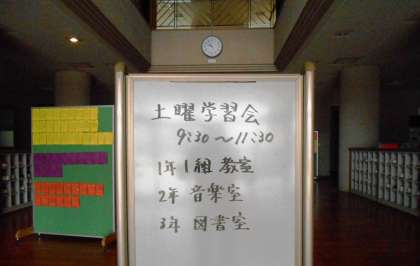 土曜学習会
9:30〜11:30
1年 1組 教室
2年 音楽室
3年 図書室